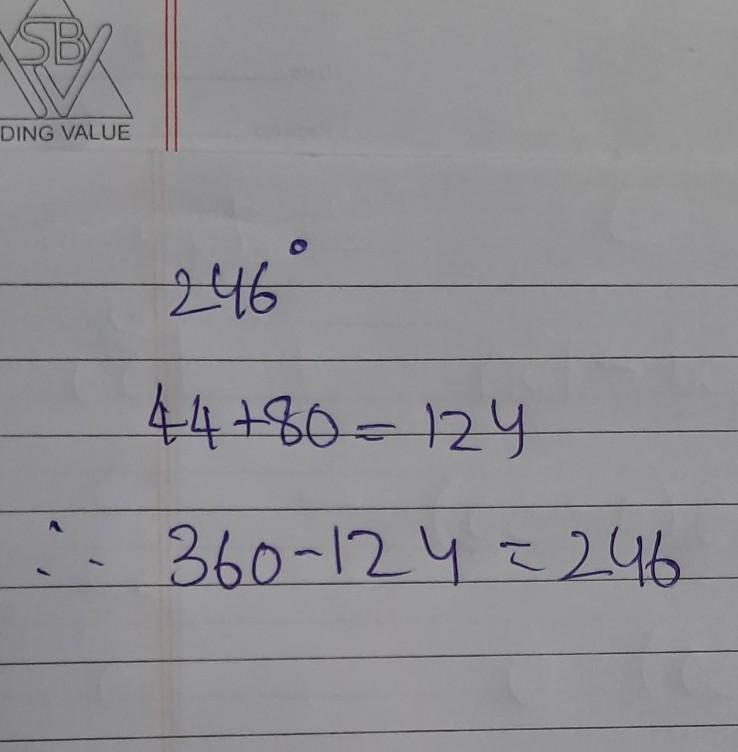 SB
DING VALUE
246°
44+80=124
∴ 360-124=246